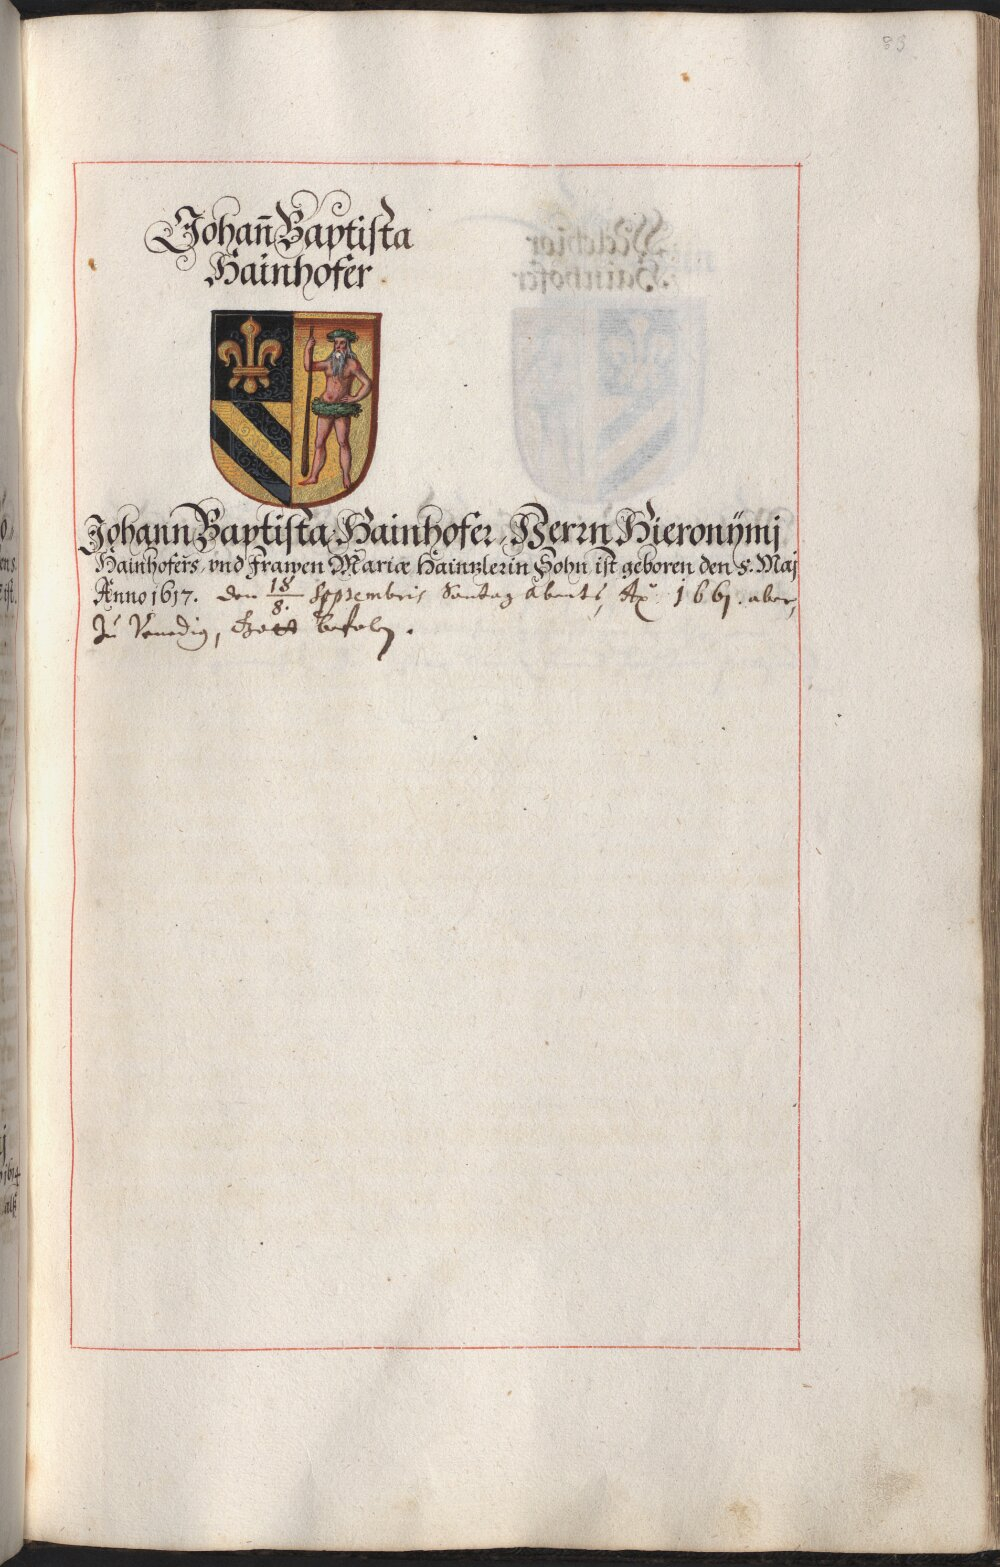 83
Johañ Baptista
Hainhofer.
Johann Baptista Hainhofer, Herrn Hieronÿmj
Hainhofers, vnd Frawen Mariæ Hainzlerin Sohn ist geboren den 8. Maj
Anno 1617. den 18/8. Septembris Sontag Abents, Aõ 1661. aber,
Zu Venedig, Gott befolen.